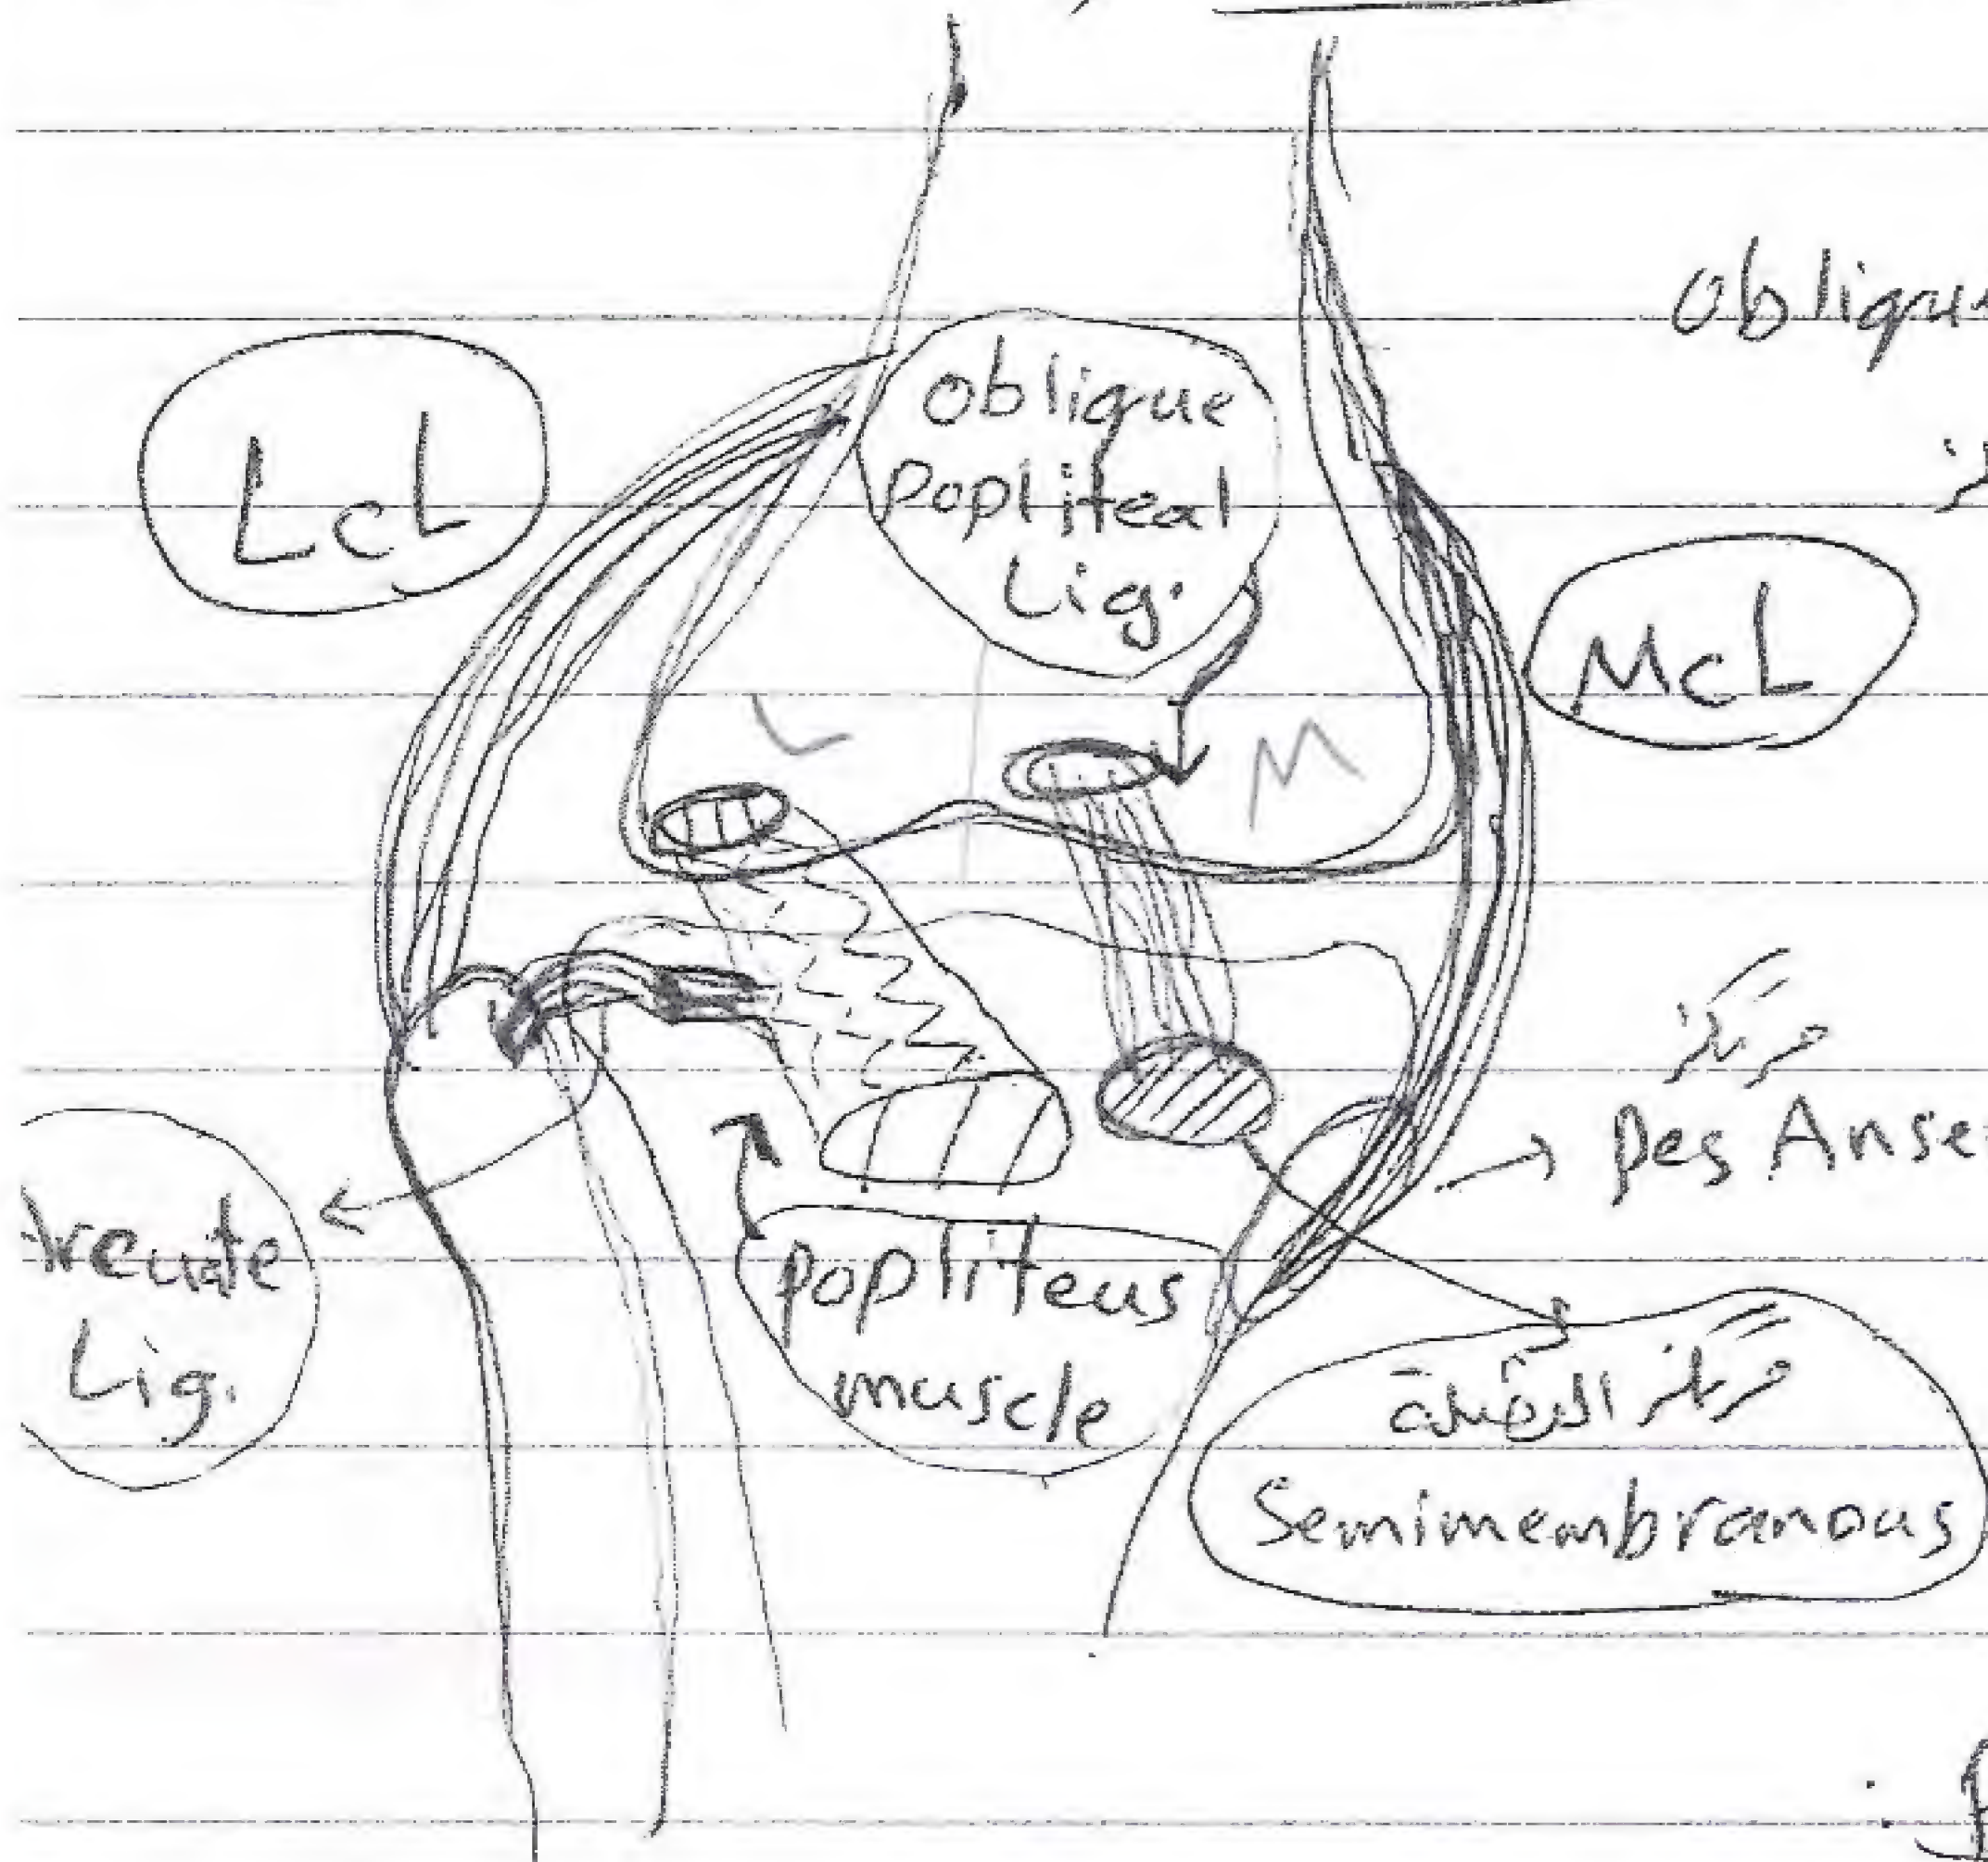 obliqu
LCL
oblique
Popliteal
Lig.
MCL
L
M
مركز
Pes Anse
rcuate
Lig.
popliteus
muscle
مركز العضلة
Semimembranous